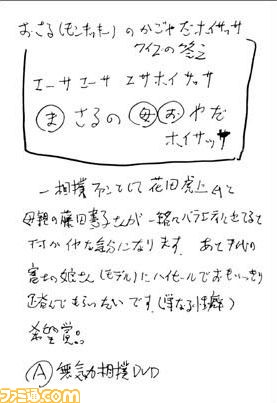 おさる(モンキッキー)のかごやだホイサッサ
クイズの答え
エーサ エーサ エサホイサッサ
まさるの母おやだ
ホイサッサ
一相撲ファンとして花田虎上さんと
母親の藤田憲子さんが一緒にバラエティに出てると
な気分になります。あと千代の
富士の娘さん(モデル)にハイヒールでおもいっきり
踏んでもらいたいです。(単なる性癖)
希望賞。
A 無気力相撲DVD
ファミ通.com